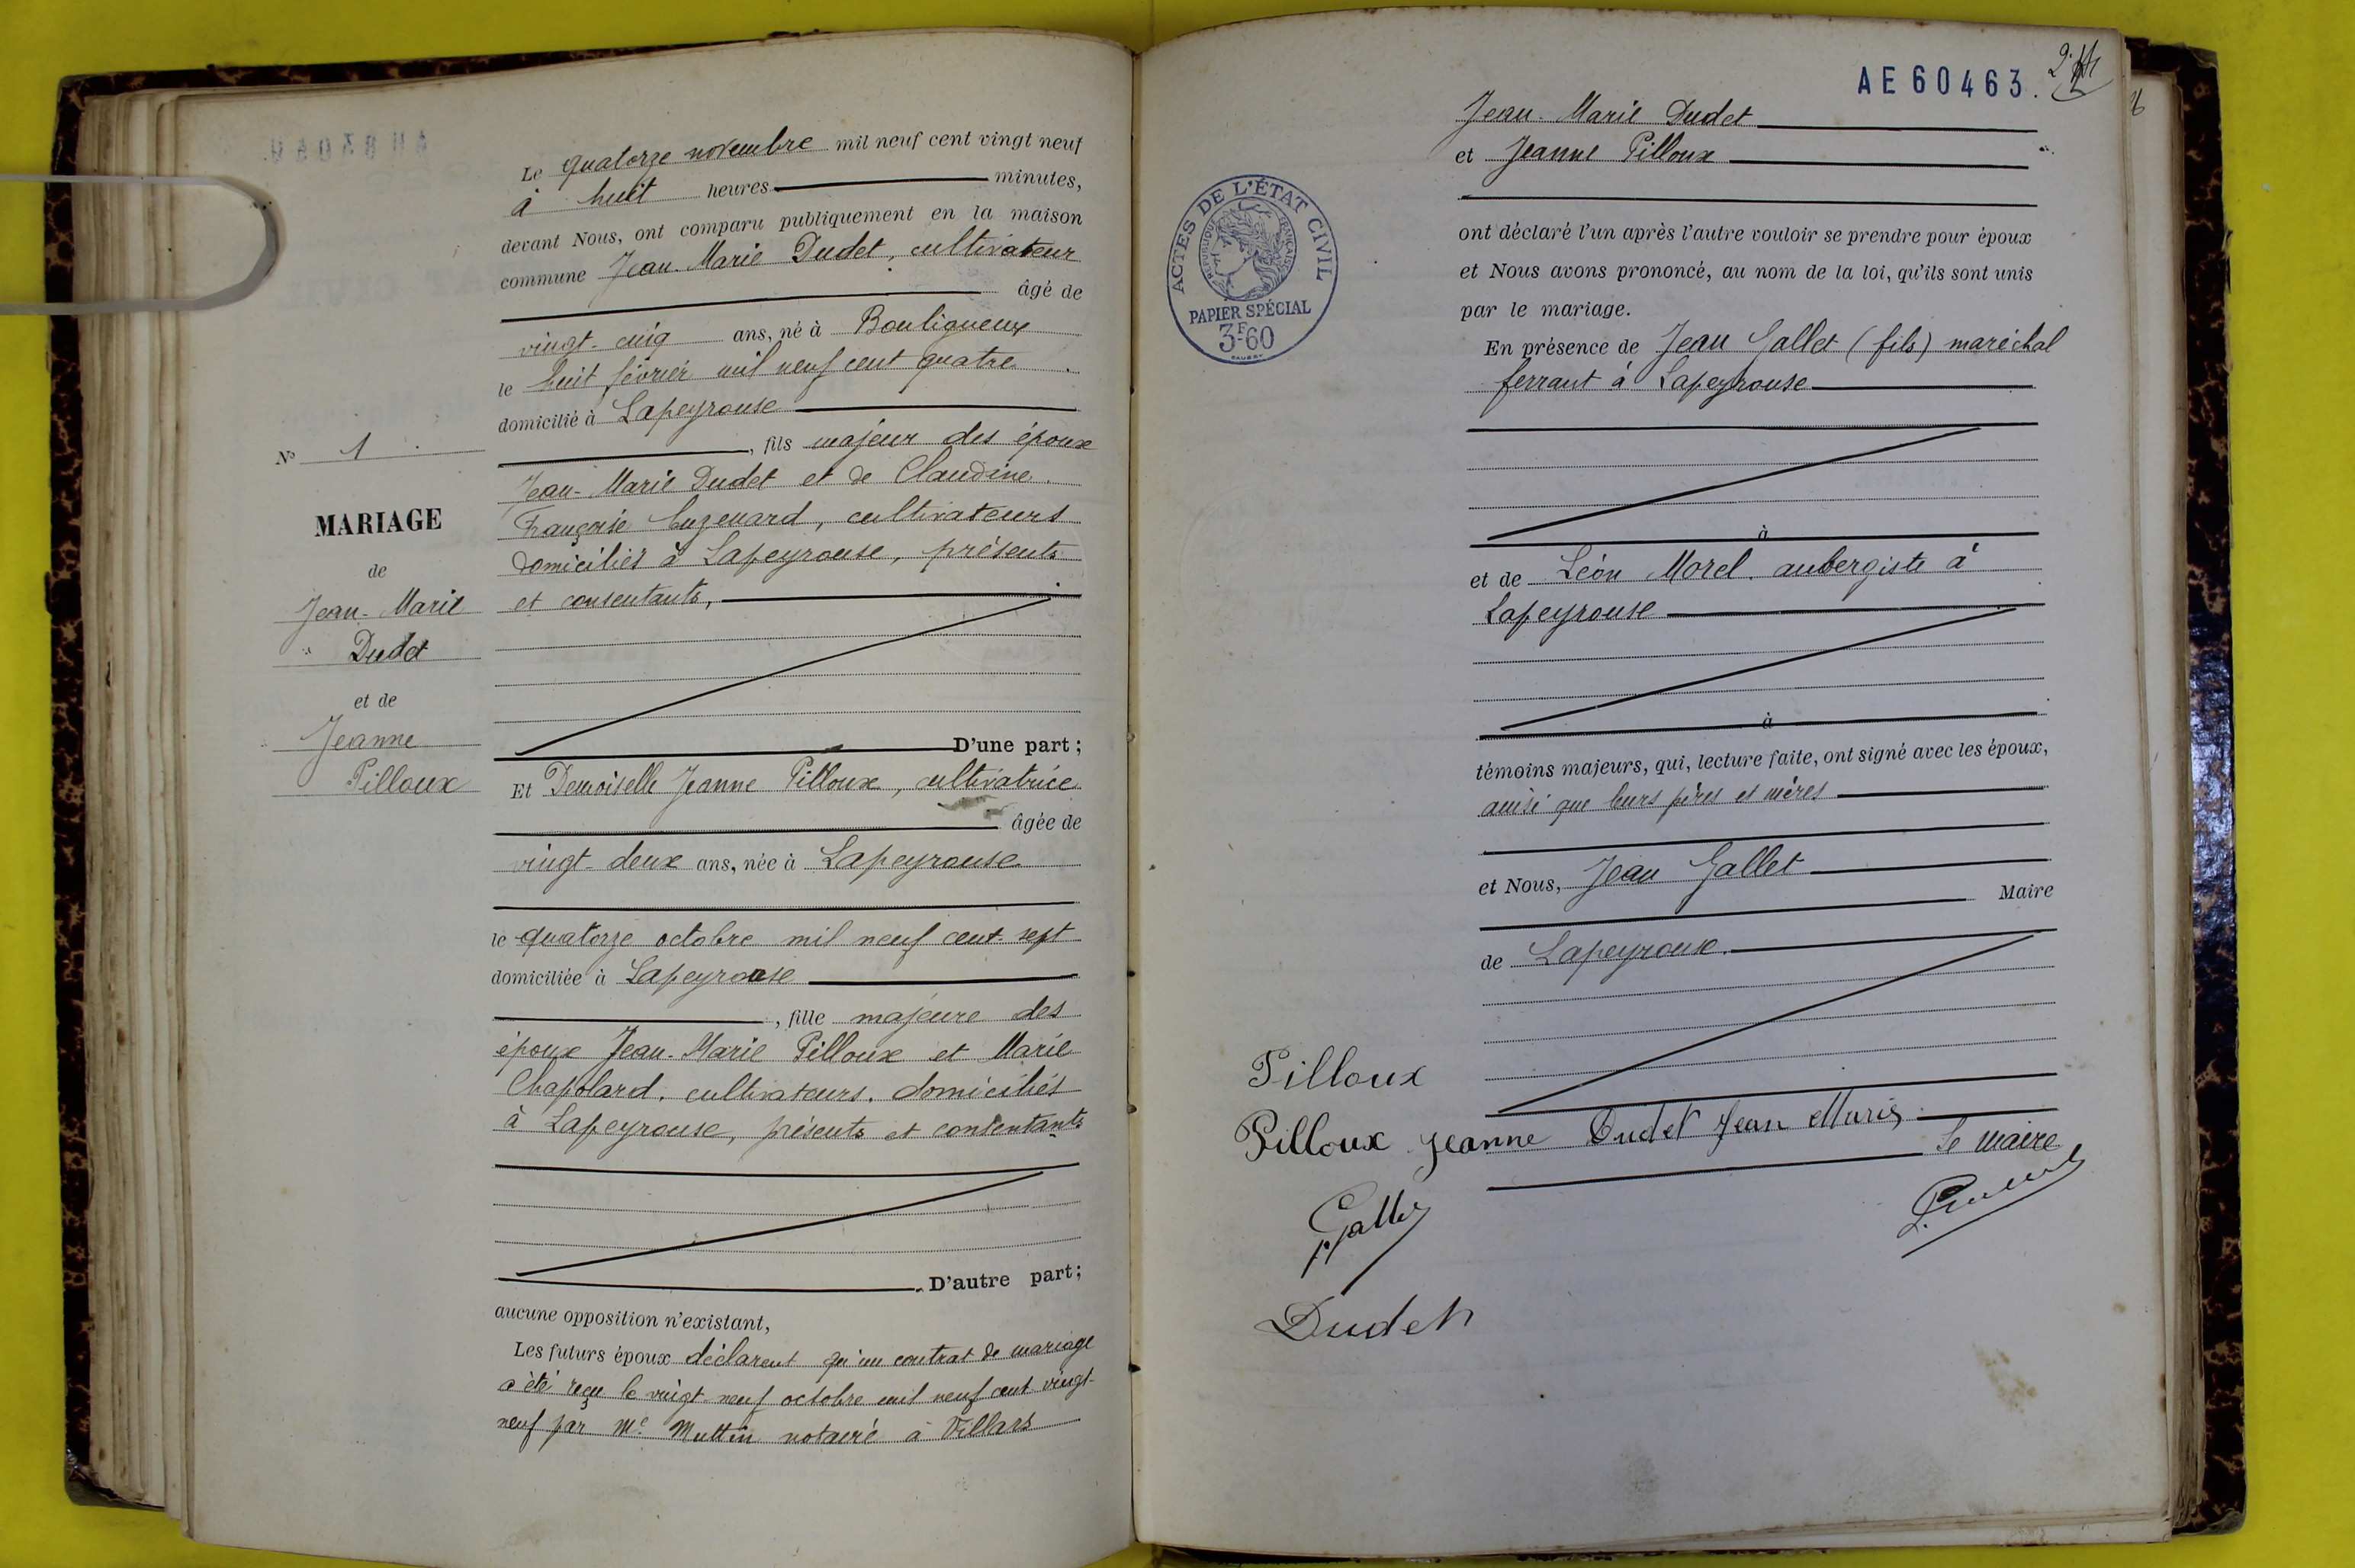 Le quatorze novembre mil neuf cent vingt neuf
à huit heures minutes,
devant Nous, ont comparu publiquement en la maison
commune Jean-Marie Dudet, cultivateur
âgé de
vingt-cinq ans, né à Bouligneux
le huit février mil neuf cent quatre
domicilié à Lapeyrouse
, fils majeur des époux
Jean-Marie Dudet et de Claudine
Françoise, cultivateurs
domiciliés à Lapeyrouse, présents
et consentants,
D'une part ;
Et Demoiselle Jeanne Pilloux, cultivatrice
âgée de
vingt-deux ans, née à Lapeyrouse
le quatorze octobre mil neuf cent-sept
domiciliée à Lapeyrouse
, fille majeure des
époux Jean-Marie Pilloux et Marie
Chapolard, cultivateurs, domiciliés
à Lapeyrouse, présents et consentants
D'autre part ;
aucune opposition n'existant,
Les futurs époux déclarent qu'un contrat de mariage
a été reçu le vingt-neuf octobre mil neuf cent vingt-
neuf par Me Muttin notaire à Villars
N° 1
MARIAGE
de
Jean-Marie
Dudet
et de
Jeanne
Pilloux
AE60463.
Jean-Marie Dudet
et Jeanne Pilloux
ACTES DE L'ÉTAT CIVIL
RÉPUBLIQUE FRANÇAISE
PAPIER SPÉCIAL
3F60
ont déclaré l'un après l'autre vouloir se prendre pour époux
et Nous avons prononcé, au nom de la loi, qu'ils sont unis
par le mariage.
En présence de Jean Gallet (fils) maréchal
ferrant à Lapeyrouse
à
et de Léon Morel, aubergiste à
Lapeyrouse
à
témoins majeurs, qui, lecture faite, ont signé avec les époux,
ainsi que leurs pères et mères
et Nous, Jean Gallet
Maire
de Lapeyrouse.
Pilloux
Pilloux Jeanne Dudet Jean Marie
Le Maire
Dudet